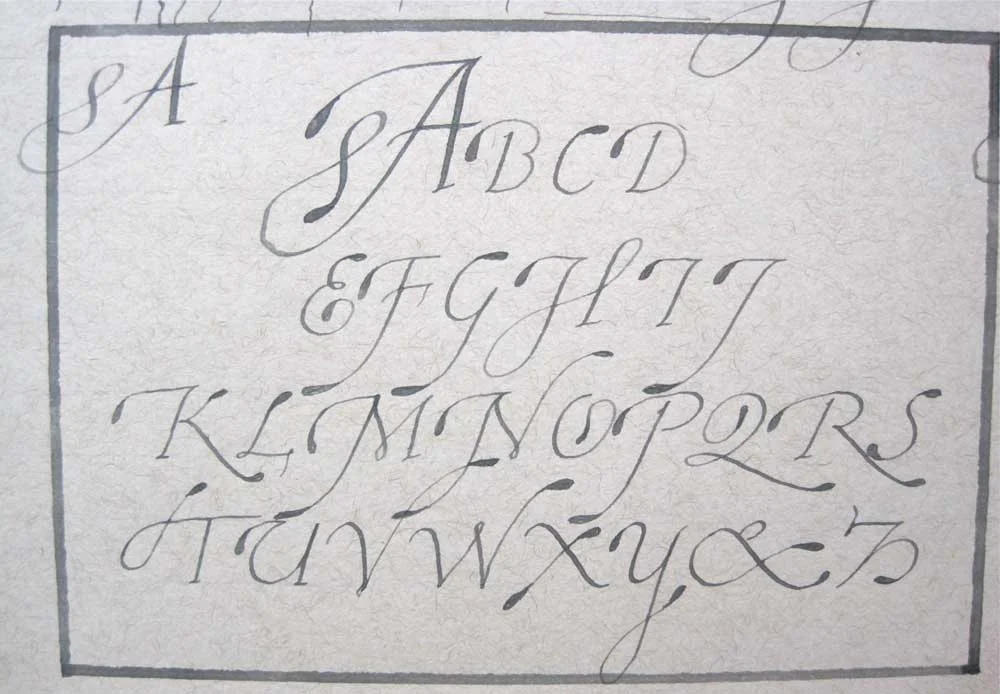 SA
SABCD
EFGHIJ
KLMNOPQRS
TUVWXY&Z